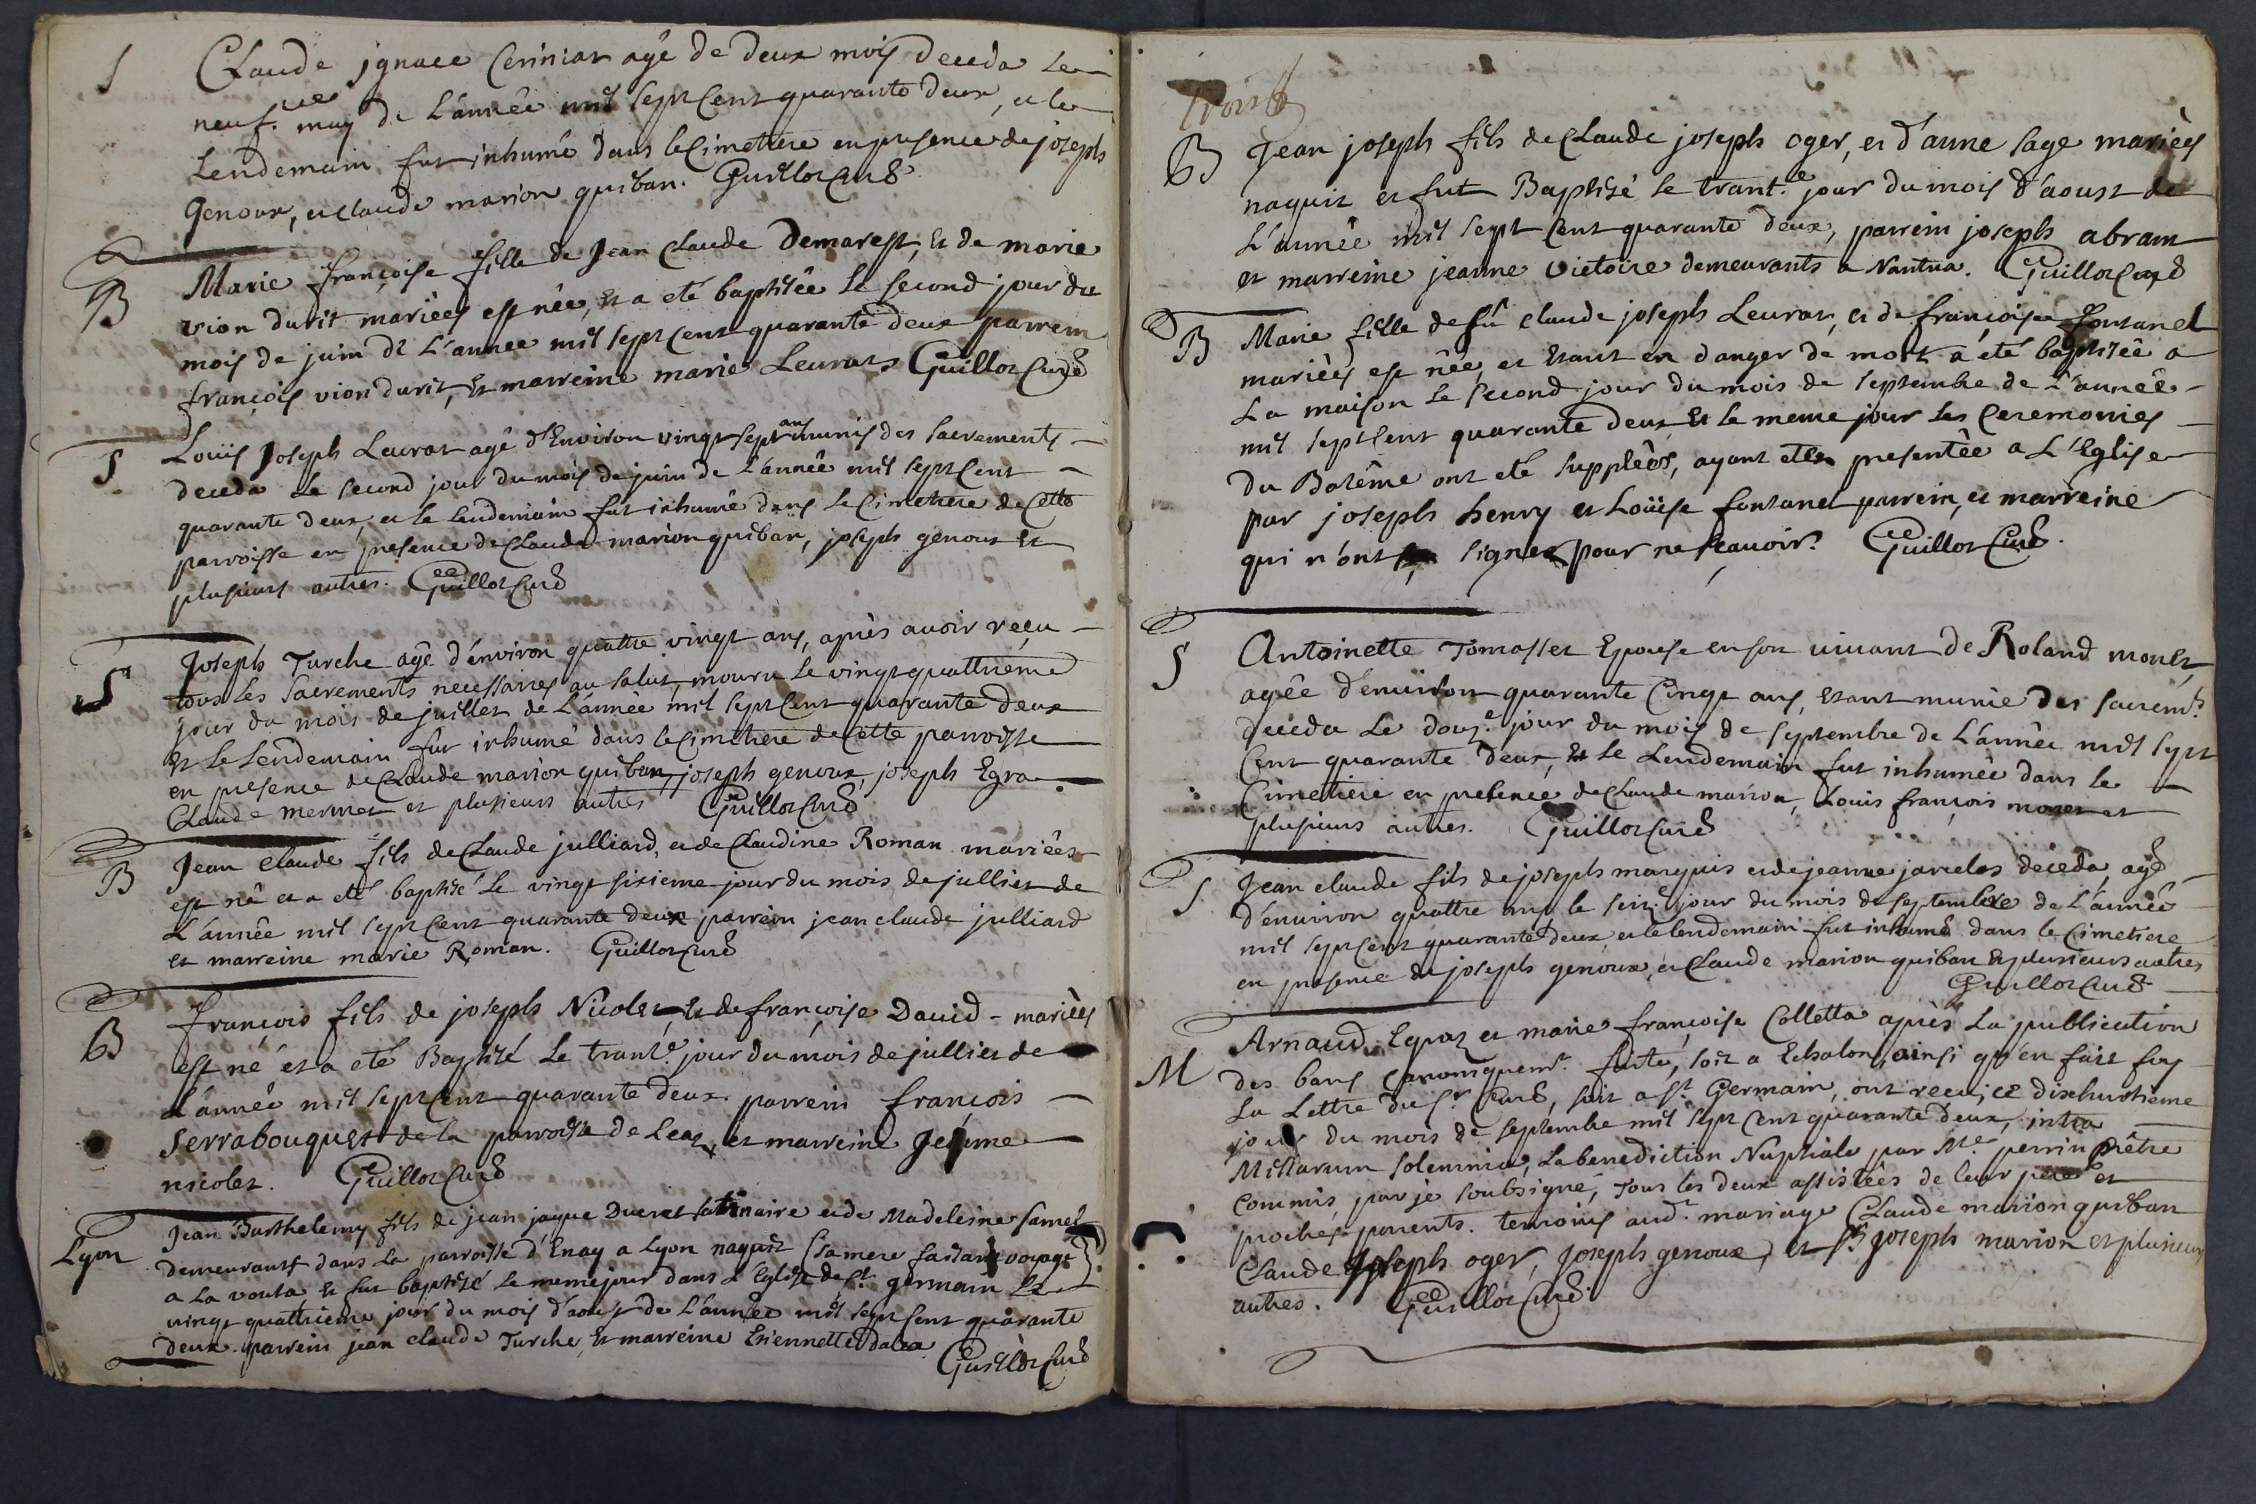 S
Claude ignace Ceriniat agé de deux mois deceda le
neuf.me may de L'année mil sept Cent quarante deux, et le
Lendemain fut inhumé dans le Cimetiere en presence de joseph
Genoux, et claude marion quiban. Guillot Curé
B
Marie françoise fille de Jean Claude Demarest, Et de marie
vion durit mariées est née, Et a eté baptisée le second jour du
mois de juin de L'annee mil sept cent quarante deux parrein
françois vion durit, Et marreine marie Leurat Guillot Curé
S
Loüis Joseph Leurat agé d'Environ vingt sept ans munis des sacrements
deceda le second jour du mois de juin de L'année mil sept Cent
quarante deux, et le lendemain fut inhumé dans le Cimetiere de Cette
parroisse en presence de Claude marion quiban, joseph genoux Et
plusieurs autres. Guillot Curé
S
Joseph Turche agé d'énviron quattre vingt ans, après avoir reçu
tous les sacrements necessaires au salut, mouru le vingt quattriéme
jour du mois de juillet de L'année mil sept Cent quarante deux
Et le Lendemain fut inhumé dans le Cimetiere de Cette parroisse
en presence de Claude marion quiban, joseph genoux, joseph Egra
Claude mermet et plusieurs autres Guillot Curé
B
Jean Claude fils de Claude julliard, et de Claudine Roman mariées
est né et a eté baptisé le vingt sixieme jour du mois de jullier de
L'année mil sept Cent quarante deux parrein jean claude julliard
et marreine marie Roman. Guillot Curé
B
françois fils de joseph Nicolet, Et de françoise David mariées
est né ét a eté Baptisé Le trant.e jour du mois de jullier de
L'année mil sept Cent quarante deux parrein françois
Serrabouquet de la parroisse de Leaz, et marreine
nicolet. Guillot Curé
Lyon
Jean Barthelemy fils de jean jaque Ducret satinaire et de Madeleine Samet
demeurants dans la parroisse d'Enay a Lyon naquit (sa mere faisant voyage)
a la vouta Et fut baptisé le meme jour dans L'Eglise de St. germain Le
vingt quattrieme jour du mois d'aoust de L'année mil sept Cent quarante
deux. parrein jean claude Turche, Et marreine Etiennette
Guillot Curé
B
Jean joseph fils de Claude joseph oger, et d'anne sage mariées
naquit et fut Baptisé le trant.e jour du mois d'aoust de
L'année mil sept Cent quarante deux, parrein joseph abram
et marreine jeanne victoire demeurants a Nantua. Guillot Curé
B
Marie fille de fû claude joseph Leurat, et de françoise fontanel
mariées est née, et Etant en danger de mort a été baptisée a
La maison le second jour du mois de septembre de L'année
mil sept Cent quarante deux Et le meme jour les Ceremonies
du Batême ont eté suppléés, ayant eté presentée a L'Eglise
par joseph henry et Loüise fontanel parrein, et marreine
qui n'ont signer pour ne sçavoir. Guillot Curé.
S
Antoinette Tomasset Epouse en son vivant de Roland monet,
agée d'environ quarante Cinqt ans, Etant munie des sacremts.
deceda le douz.e jour du mois de septembre de L'année mil sept
Cent quarante deux, Et le Lendemain fut inhumée dans le
Cimetiere en presence de Claude marion, Louis françois monet et
plusieurs autres. Guillot Curé
S
Jean claude fils de joseph marquis et de jeanne javelot deceda, agé
d'environ quattre ans le seiz.e jour du mois de septembre de L'année
mil sept Cent quarante deux et le lendemain fut inhumé dans le Cimetiere
en presence de joseph genoux, et Claude marion quiban Et plusieurs autres
Guillot Curé
M
Arnaud Egraz et marie françoise Colletta après La publication
des bans Canoniquemt. faite, soit a Echalon ainsi qu'en fait foy
La Lettre du Sr. Curé, soit a St. Germain, ont reçu, ce dixhuitième
jour du mois de septembre mil sept Cent quarante deux, intra
Missarum solemnia, La benediction Nuptiale par Mre. perrin Prêtre
Commis, par je soubsigné, Tous les deux assistées de leur pere et
proches parents. temoins aud.t mariage Claude marion quiban
Claude Joseph oger, Joseph genoux, et Sr. joseph marion et plusieurs
autres. Guillot Curé